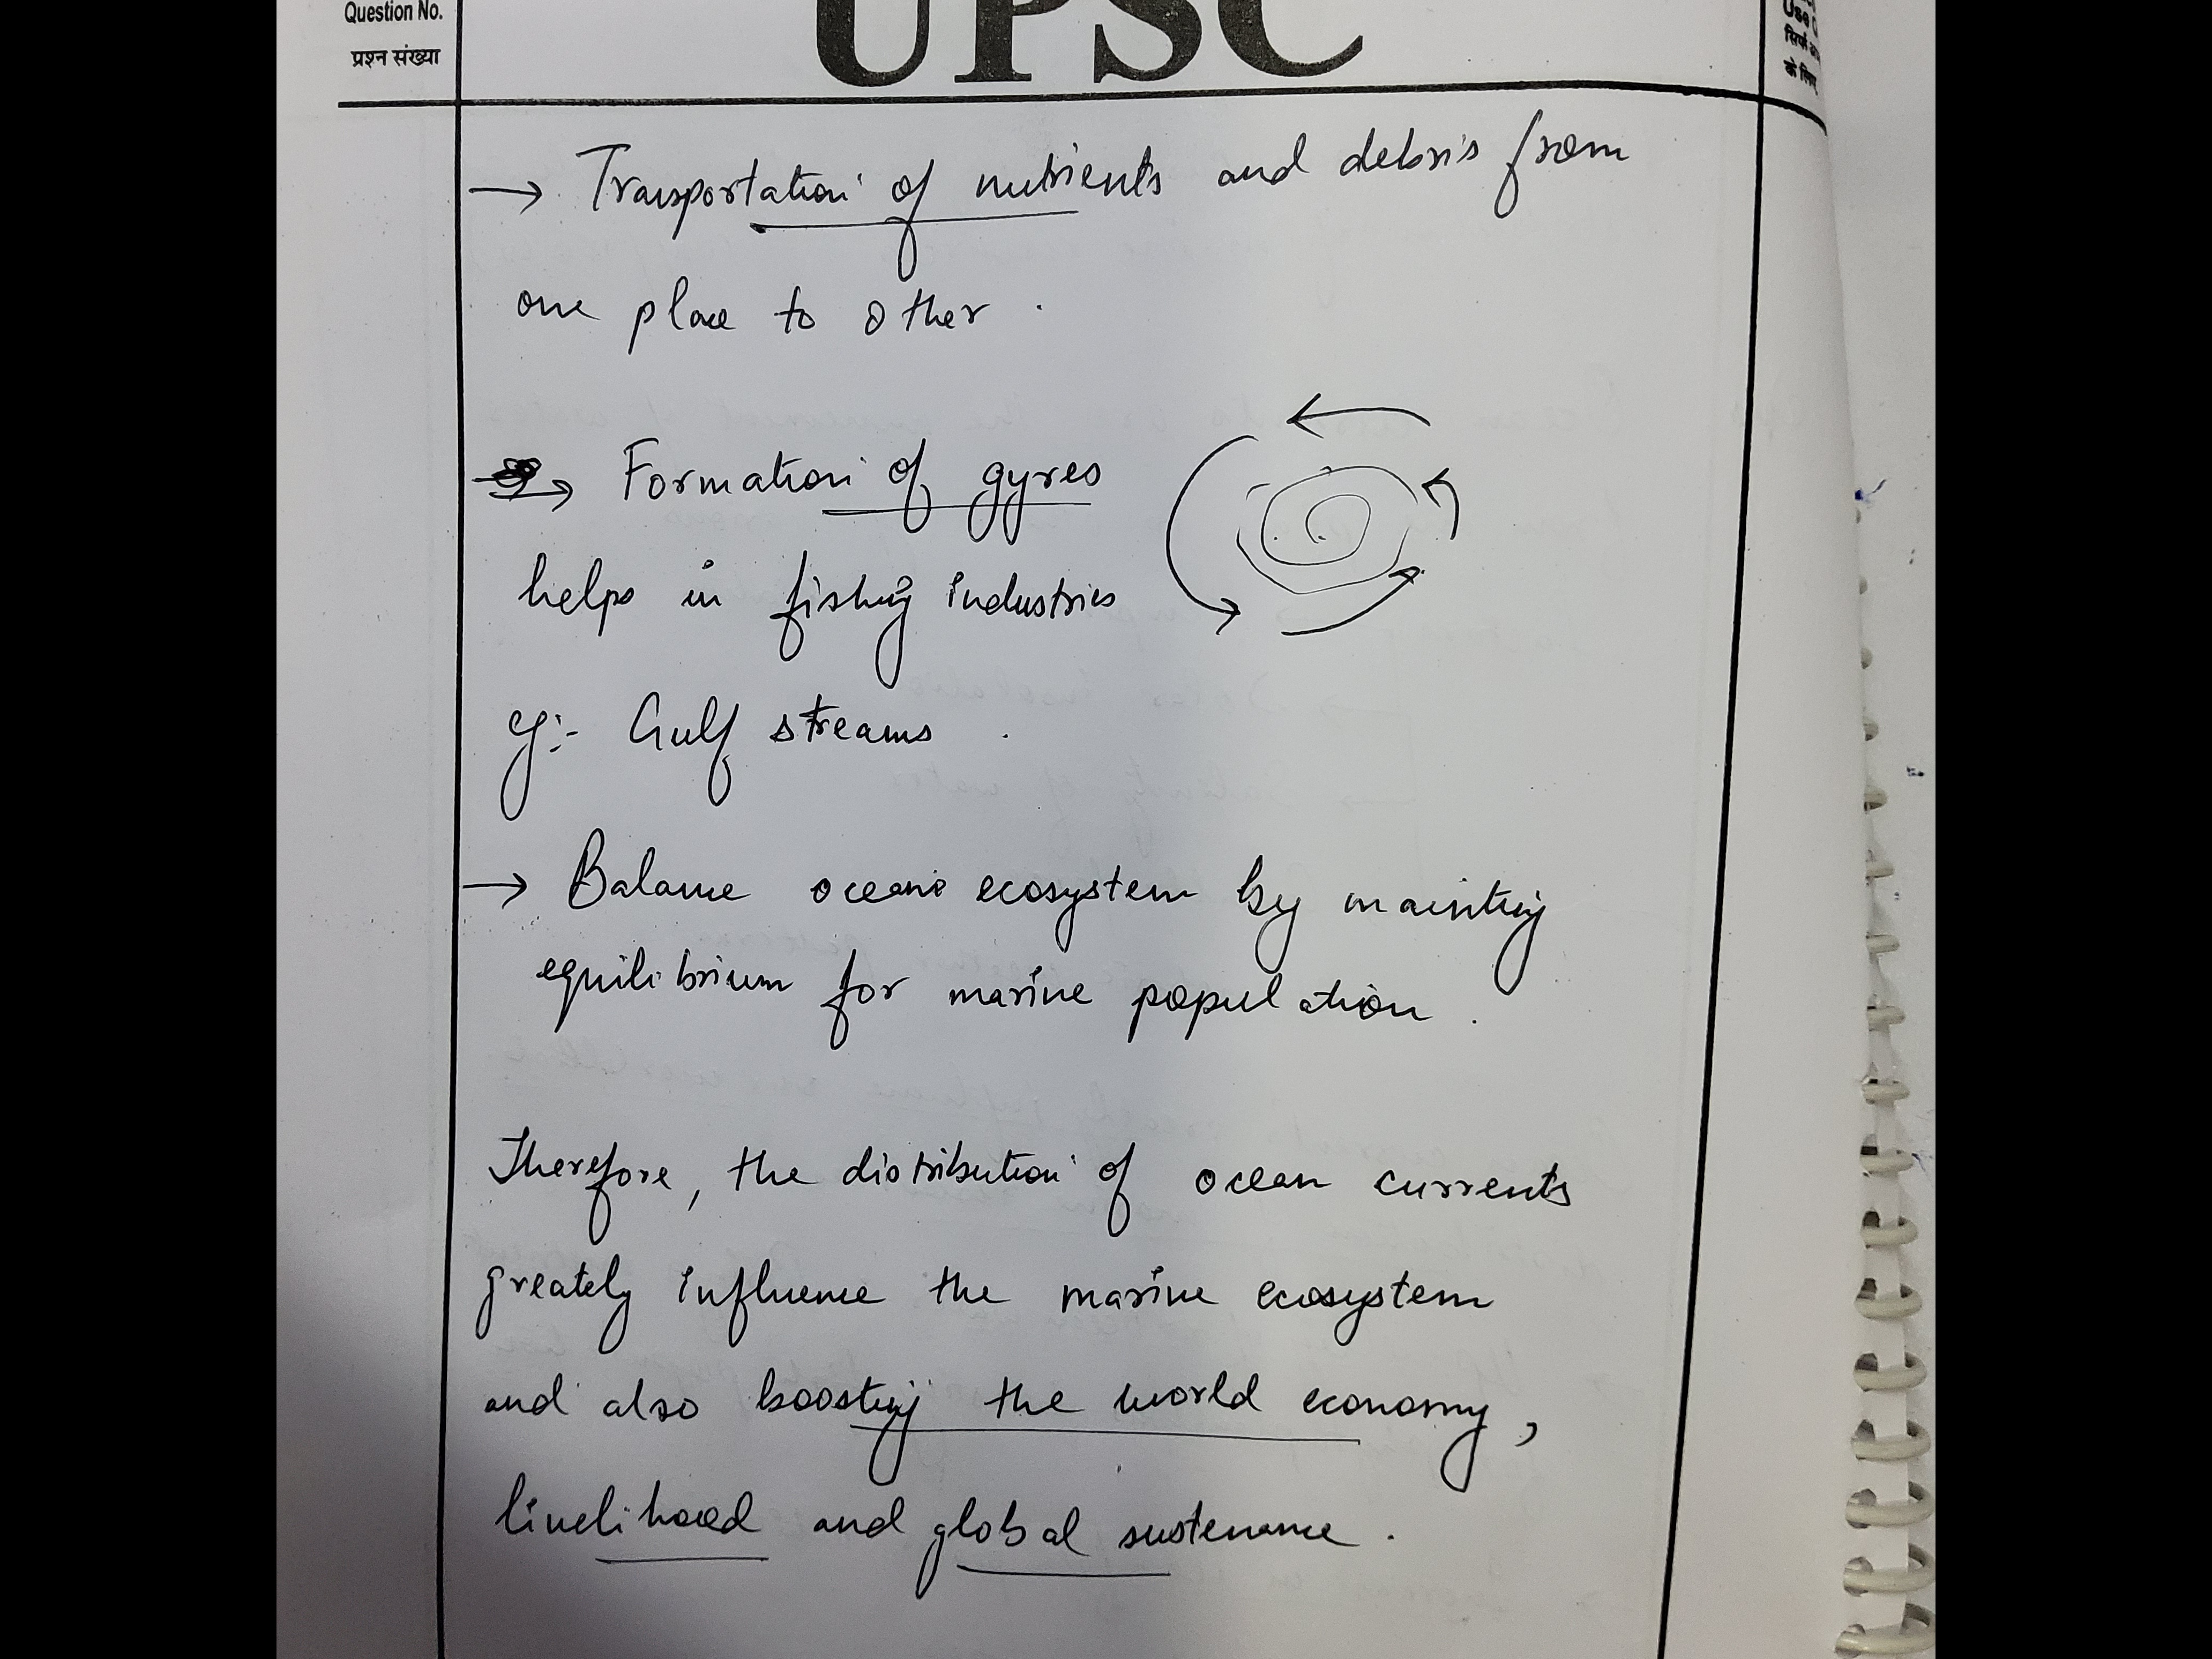 Question No.
प्रश्न संख्या
UPSC
→ Transportation of nutrients and debris from
one place to other .
→ Formation of gyres
helps in fishing industries
eg:- Gulf streams .
→ Balance oceanic ecosystem by mainting
equilibrium for marine population .
Therefore, the distribution of ocean currents
greately influence the marine ecosystem
and also boosting the world economy,
livelihood and global sustenance .